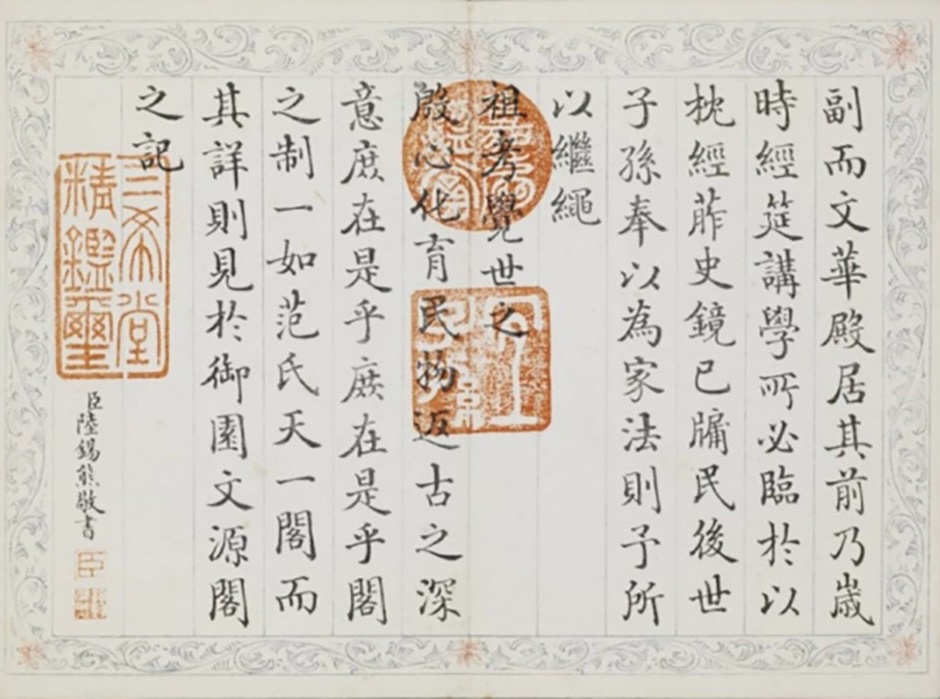 副而文華殿居其前乃歲
時經筵講學所必臨於以
枕經葄史鏡已牖民後世
子孫奉以為家法則予所
以繼繩
祖考覺世之
殷心化育民物返古之深
意庶在是乎庶在是乎閣
之制一如范氏天一閣而
其詳則見於御園文源閣
之記
臣陸錫熊敬書
三希堂
精鑑璽
宜
子孫
臣